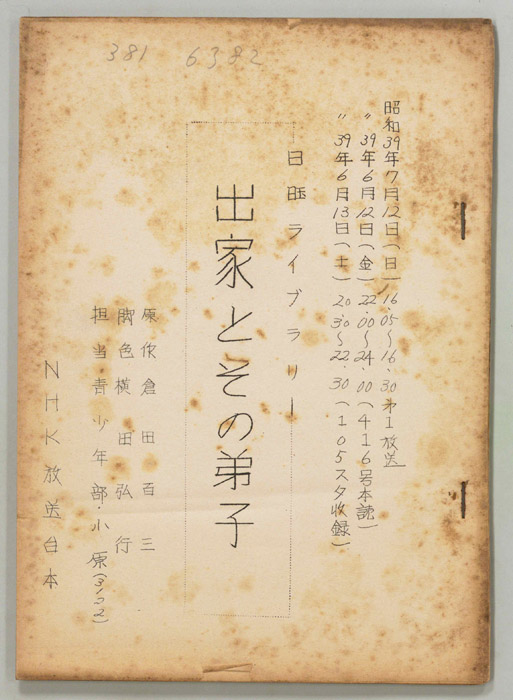 381 6382
昭和39年7月12日(日)16.05〜16.30 第1放送
〃 39年6月12日(金)22.00〜24.00(416号本読)
〃 39年6月13日(土)20.30〜22.30(105スタ収録)
日曜ライブラリー
出家とその弟子
原作 倉田百三
脚色 横田弘行
担当 青少年部・小原(3122)
NHK放送台本